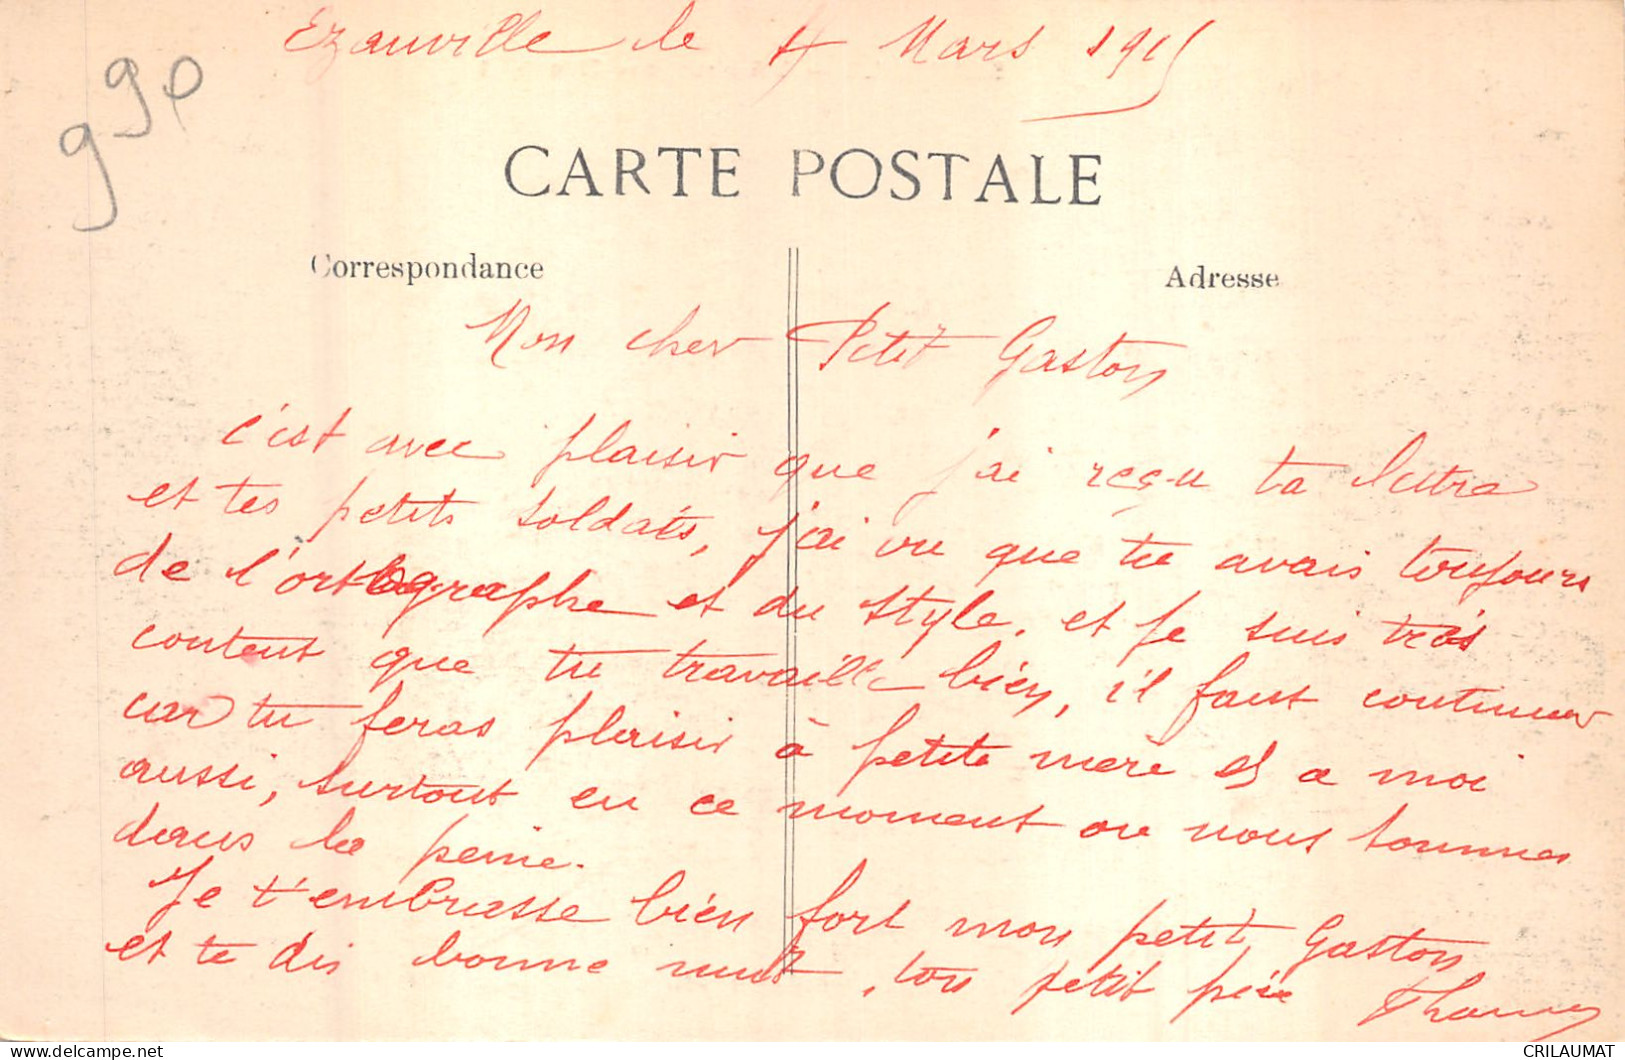 Ezanville le 4 Mars 1915
990
CARTE POSTALE
Correspondance
Adresse
Mon cher Petit Gaston
c'est avec plaisir que j'ai reçu ta lettre
et tes petits soldats, j'ai vu que tu avais toujours
de l'ortographe et du style. et je suis très
content que tu travaille bien, il faut continuer
car tu feras plaisir à petite mère et a moi
aussi, surtout en ce moment ou nous sommes
dans la peine.
Je t'embrasse bien fort mon petit Gaston
et te dis bonne nuit, ton petit père
CRILAUMAT